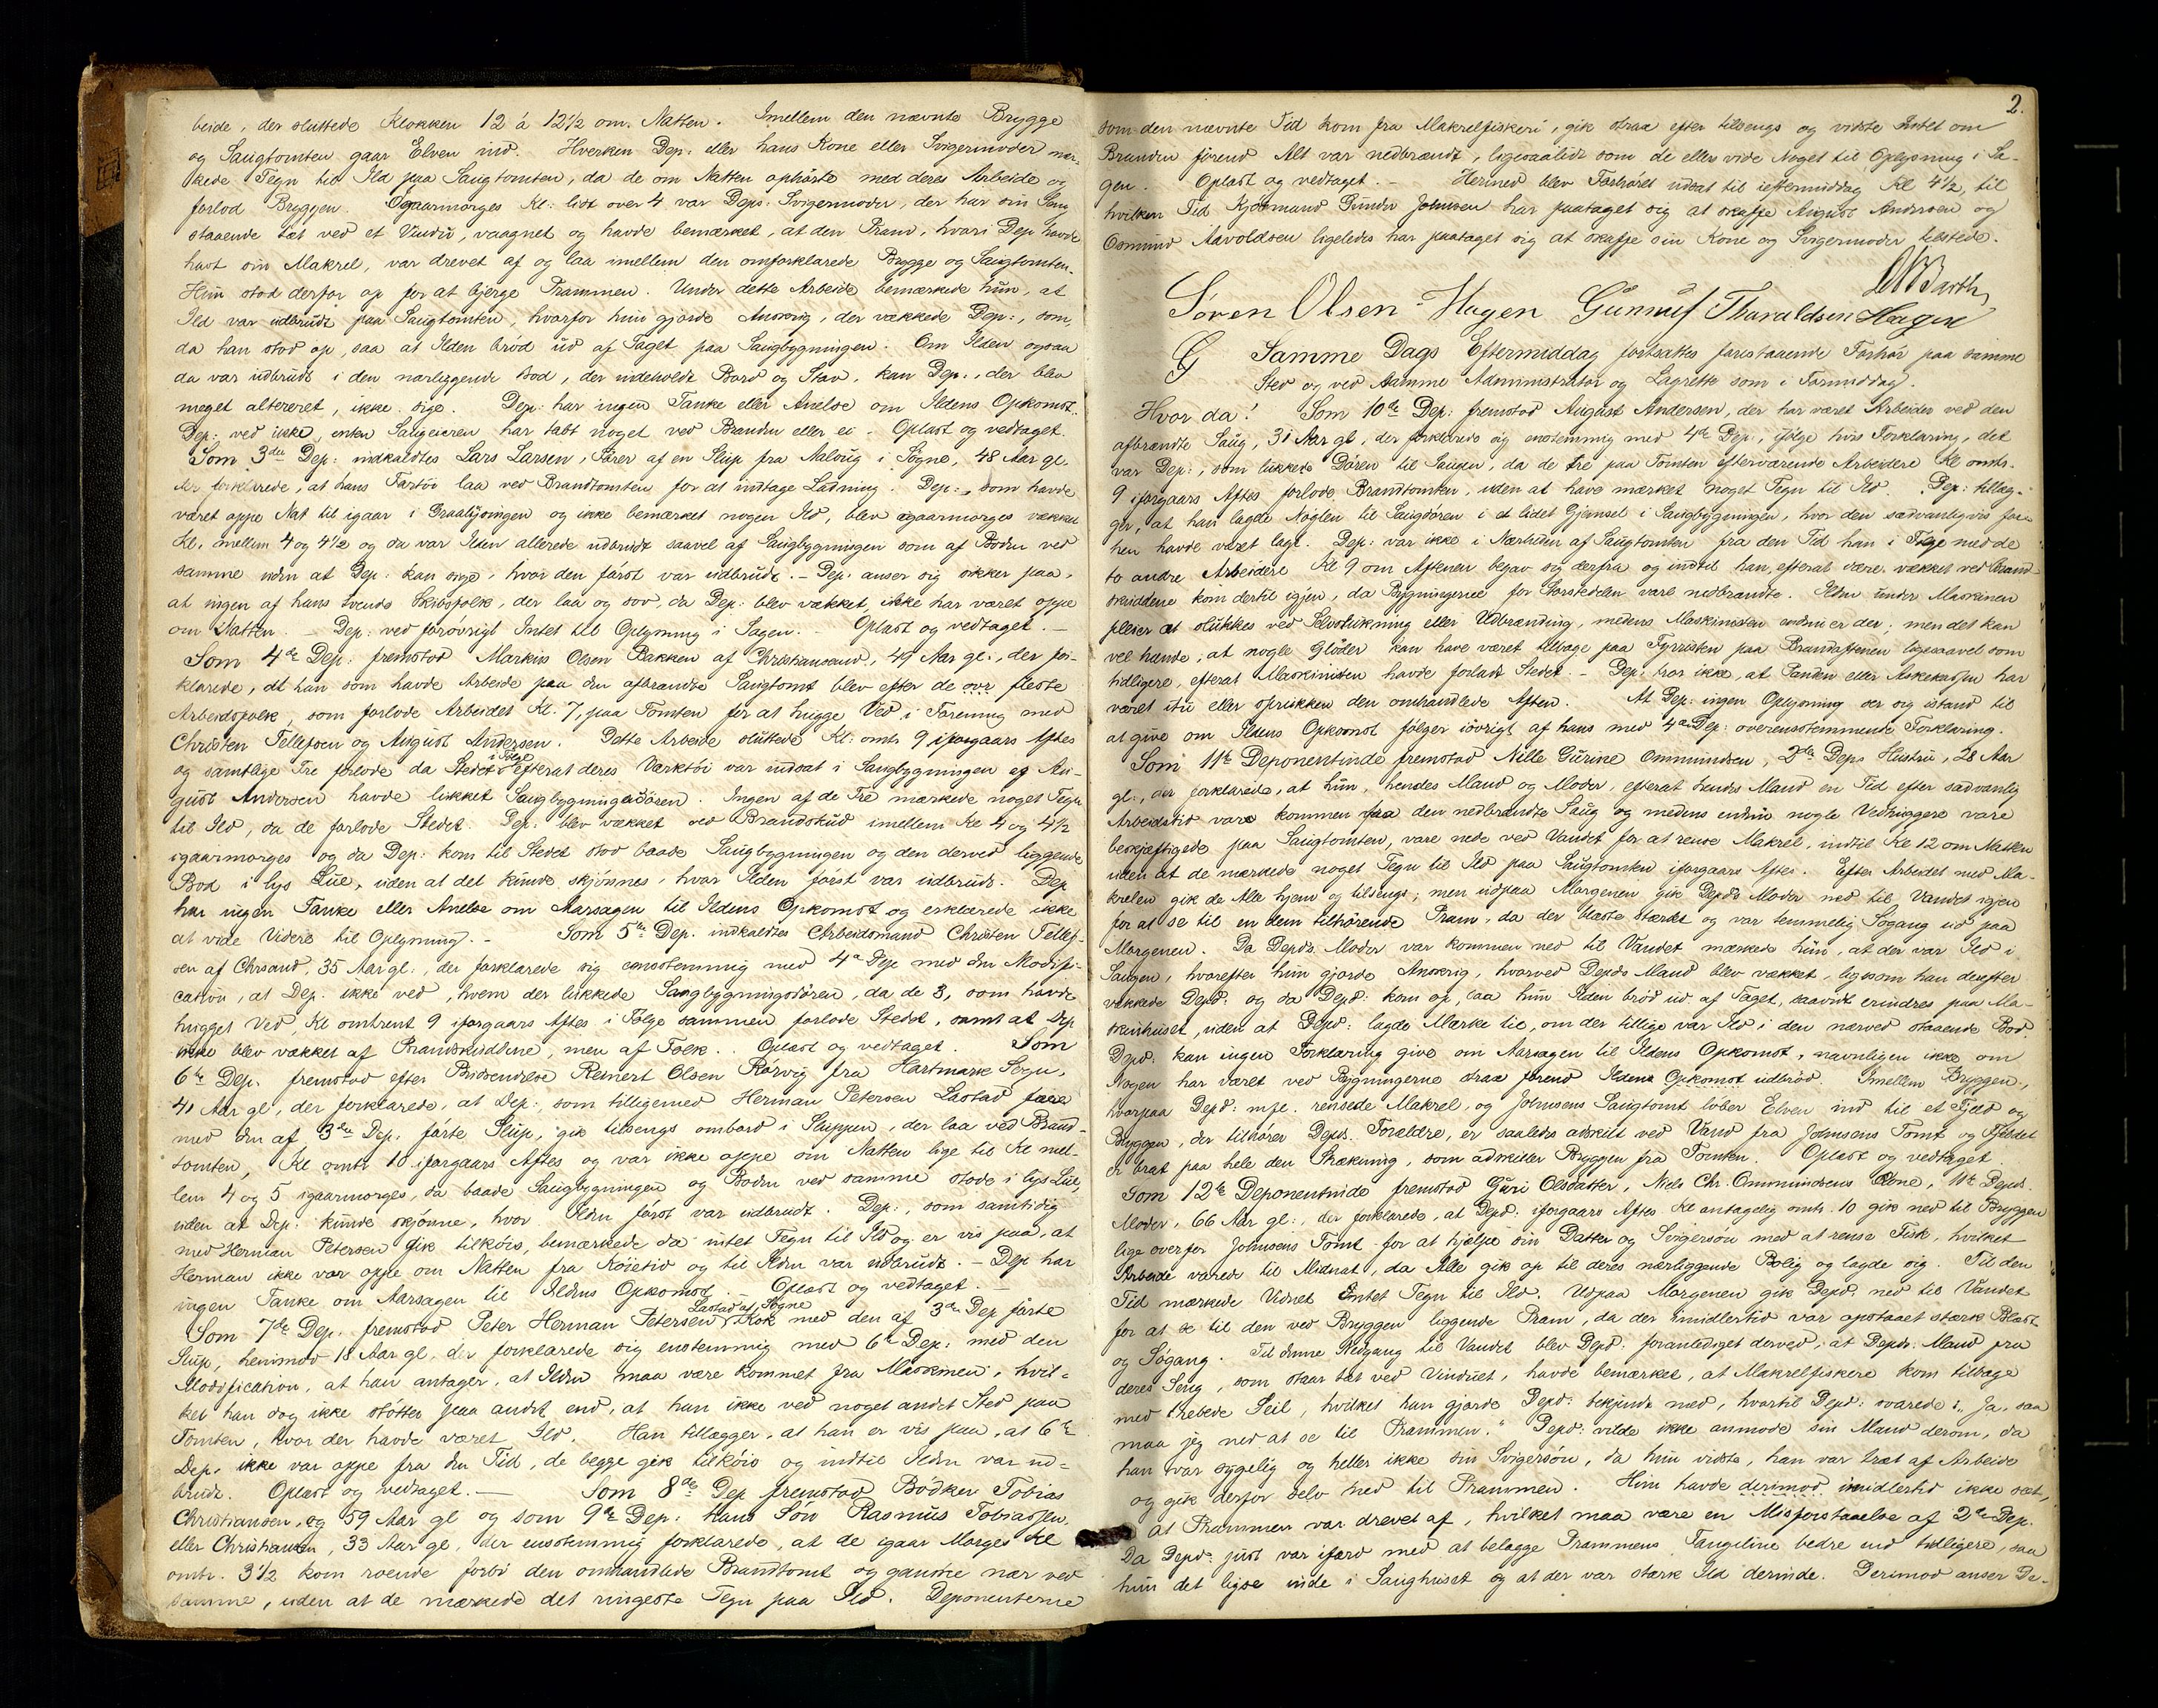 beide, der sluttede Klokken 12 á 12½ om. Natten. Imellem den nævnte Brygge
og Saugtomten gaar Elven ind. Hverken Dep: eller hans Kone eller Svigermoder mær-
kede Tegn til Ild paa Saugtomten, da de om Natten ophørte med deres Arbeide og
forlod Bryggen. Igaarmorges Kl: lidt over 4 var Deps: Svigermoder, der har sin Seng
staaende tæt ved et Vindu, vaagnet og havde bemærket, at den Pram, hvori Dep havde
havt sin Makrel, var drevet af og laa imellem den omforklarede Brygge og Saugtomten.
Hun stod derfor op for at bjerge Prammen. Under dette Arbeide bemærkede hun, at
Ild var udbrudt paa Saugtomten, hvorfor hun gjorde Anskrig, der vækkede Dep:, som,
da han stod op, saa at Ilden brød ud af Taget paa Saugbygningen. Om Ilden ogsaa
da var udbrudt i den nærliggende Bod, der indeholdt Bord og Stav, kan Dep:, der blev
meget altereret, ikke sige. Dep: har ingen Tanke eller Anelse om Ildens Opkomst.
Dep: ved ikke, enten Saugeieren har tabt noget ved Branden eller ei. Oplæst og vedtaget.
Som 3die Dep: indkaldtes Lars Larsen, Fører af en Slup fra Naloug i Søgne, 48 Aar gl.
der forklarede, at hans Fartøi laa ved Brandtomten for at indtage Ladning. Dep:, som havde
været oppe Nat til igaar i Graalysningen og ikke bemærket nogen Ild, blev igaarmorges vækket
Kl. mellem 4 og 4½ og da var Ilden allerede udbrudt saavel af Saugbygningen som af Boden ved
samme uden at Dep: kan sige, hvor den først var udbrudt. – Dep. anser sig sikker paa,
at ingen af hans tvende Skibsfolk, der laa og sov, da Dep: blev vækket, ikke har været oppe
om Natten. – Dep: ved forøvrigt Intet til Oplysning i Sagen. – Oplæst og vedtaget. –
Som 4de Dep: fremstod Markus Olsen Bakken af Christianssand, 49 Aar gl:, der for-
klarede, at han som havde Arbeide paa den afbrændte Saugtomt blev efter de fleste
Arbeidsfolk, som forlode Arbeidet Kl. 7, paa Tomten for at hugge Ved i Forening med
Christen Tellefsen og August Andersen. Dette Arbeide sluttede Kl: omtr 9 iforgaars Aftes
og samtlige Tre forlode da Stedet i Følge efterat deres Værktøi var indsat i Saugbygningen og Au-
gust Andersen havde lukket Saugbygningsdøren. Ingen af de Tre mærkede noget Tegn
til Ild, da de forlode Stedet. Dep: blev vækket ved Brandskud imellem Kl 4 og 4½
igaarmorges og da Dep: kom til Stedet stod baade Saugbygningen og den derved liggende
Bod i lys Lue, uden at det kunde skjønnes, hvor Ilden først var udbrudt. Dep
har ingen Tanke eller Anelse om Aarsagen til Ildens Opkomst og erklærede ikke
at vide Videre til Oplysning. – Som 5te Dep. indkaldtes Arbeidsmand Christen Tellef-
sen af Chrsand, 35 Aar gl:, der forklarede sig eensstemmig med 4de Dep med den Modifi-
cation, at Dep. ikke ved, hvem der lukkede Saugbygningsdøren, da de 3, som havde
hugget Ved, Kl omtrent 9 iforgaars Aftes i Følge sammen forlode Stedet, samt at Dep
ikke blev vækket af Brandskuddene, men af Folk. Oplæst og vedtaget. Som
6te Dep. fremstod efter Reinert Olsen Rørvig fra Hartmark Sogn,
41 Aar gl, der forklarede, at Dep:, som tilligemed Herman Petersen Lastad fare
med den af 3die Dep. førte Slup, gik tilsengs ombord i Sluppen, der laa ved Brand-
tomten, Kl omtr 10 iforgaars Aftes og var ikke oppe om Natten lige til Kl mel-
lem 4 og 5 igaarmorges, da baade Saugbygningen og Boden ved samme stode i lys Lue,
uden at Dep: kunde skjønne, hvor Ilden først var udbrudt. Dep:, som samtidig
med Herman Petersen gik tilkøis, bemærkede da intet Tegn til Ild og er vis paa, at
Herman ikke var oppe om Natten fra Køietid og til Ilden var udbrudt. – Dep har
ingen Tanke om Aarsagen til Ildens Opkomst. Oplæst og vedtaget. –
Som 7de Dep. fremstod Peter Herman Petersen Lastad af Søgne, Kok med den af 3die Dep førte
Slup, henimod 18 Aar gl, der forklarede sig enstemmig med 6te Dep: med den
Modification, at han antager, at Ilden maa være kommet fra Maskinen, hvil-
ket han dog ikke støtter paa andet end, at han ikke ved noget andet Sted paa
Tomten, hvor der havde været Ild. Han tillægger, at han er vis paa, at 6te
Dep. ikke var oppe fra den Tid, de begge gik tilkøis og indtil Ilden var ud-
brudt. Oplæst og vedtaget. – Som 8de Dep fremstod Bødker Tobias
Christiansen, 59 Aar gl og som 9de Dep: hans Søn Rasmus Tobiassen
eller Christiansen, 33 Aar gl, der eensstemmig forklarede, at de igaar Morges Kl
omtr. 3½ kom roende forbi den omhandlede Brandtomt og ganske nær ved
samme, uden at de mærkede det ringeste Tegn paa Ild. Deponenterne
2.
som den nævnte Tid kom fra Makrelfiskeri, gik strax efter tilsengs og vidste Intet om
Branden førend Alt var nedbrændt, ligesaalidt som de eller vide Noget til Oplysning i Sa-
gen. Oplæst og vedtaget. – Hermed blev Forhøret udsat til ieftermiddag Kl 4½, til
hvilken Tid Kjøbmand Gunder Johnsen har paataget sig at skaffe August Andersen og
Osmund Aavoldsen ligeledes har paataget sig at skaffe sin Kone og Svigermoder tilstede.
Barth
Søren Olsen Hagen Gunnuf Tharaldsen Hagen
Samme Dags Eftermiddag fortsattes forestaaende Forhør paa samme
Sted og ved samme Administrator og Lagrette som i Formiddag.
Hvor da: Som 10de Dep: fremstod August Andersen, der har været Arbeider ved den
afbrændte Saug, 31 Aar gl, der forklarede sig enstemmig med 4de Dep:, ifølge hvis Forklaring, det
var Dep:, som lukkede Døren til Saugen, da de tre paa Tomten efterværende Arbeidere Kl omtr.
9 iforgaars Aftes forlode Brandtomten, uden at have mærket noget Tegn til Ild. Dep: tillæg-
ger, at han lagde Nøglen til Saugdøren i et lidet Gjemsel i Saugbygningen, hvor den sædvanligvis for-
hen havde været lagt. Dep: var ikke i Nærheden af Saugtomten fra den Tid han i Følge med de
to andre Arbeidere Kl 9 om Aftenen begav sig derfra og indtil han, efterat være vækket ved Brand-
skuddene kom dertil igjen, da Bygningerne for Størstedelen vare nedbrændte. Ilden under Maskinen
pleier at slukkes ved Selvslukning eller Udbrænding, medens Maskinisten endnu er der; men det kan
vel hænde, at nogle Gløder kan have været tilbage paa Fyrristen paa Brandaftenen ligesaavel som
tidligere, efterat Maskinisten havde forladt Stedet. – Dep: tror ikke, at Panden eller Askekassen har
været itu eller sprukken den omhandlede Aften. At Dep: ingen Oplysning ser sig istand til
at give om Ildens Opkomst følger iøvrigt af hans med 4de Dep: overensstemmende Forklaring.
Som 11te Deponentinde fremstod Nille Gurine Ommundsen, 2den Deps Hustru, 28 Aar
gl:, der forklarede, at hun, hendes Mand og Moder, efterat hendes Mand en Tid efter sædvanlig
Arbeidstid vare kommen fra den nedbrændte Saug og medens endnu nogle Vedhuggere vare
beskjæftigede paa Saugtomten, vare nede ved Vandet for at rense Makrel, indtil Kl 12 om Natten
uden at de mærkede noget Tegn til Ild paa Saugtomten iforgaars Aftes. Efter Arbeidet med Ma-
krelen gik de Alle hjem og tilsengs; men udpaa Morgenen gik Depds Moder ned til Vandet igjen
for at se til en dem tilhørende Pram, da der blæste stærkt og var temmelig Søgang ud paa
Morgenen. Da Depds Moder var kommen ned til Vandet mærkede hun, at der var Ild i
Saugen, hvorefter hun gjorde Anskrig, hvorved Depds Mand blev vækket, ligesom han derefter
vækkede Depd: og da Depd: kom op, saa hun Ilden brød ud af Taget, saavidt erindres paa Ma-
skinhuset, uden at Depd: lagde Mærke til, om der tillige var Ild i den nærved staaende Bod.
Depd: kan ingen Forklaring give om Aarsagen til Ildens Opkomst, navnligen ikke om
Nogen har været ved Bygningerne strax førend Ildens Opkomst udbrød. Imellem Bryggen,
hvorpaa Depd: mfl. rensede Makrel, og Johnsens Saugtomt løber Elven ind til et Fjeld og
Bryggen, der tilhører Depds. Forældre, er saaledes adskilt ved Vand fra Johnsens Tomt og Fjeldet
er brat paa hele den Strækning, som adskiller Bryggen fra Tomten. Oplæst og vedtaget
Som 12te Deponentinde fremstod Guri Olsdatter, Niels Chr. Ommundsens Kone, 11te Depds.
Moder, 66 Aar gl:, der forklarede, at Depd: iforgaars Aftes Kl antagelig omtr. 10 gik ned til Bryggen
lige overfor Johnsens Tomt for at hjælpe sin Datter og Svigersøn med at rense Fisk, hvilket
Arbeide varede til Midnat, da Alle gik op til deres nærliggende Bolig og lagde sig. Til den
Tid mærkede Vidnet Intet Tegn til Ild. Udpaa Morgenen gik Depd: ned til Vandet
for at se til den ved Bryggen liggende Pram, da der imidlertid var opstaaet stærk Blæst
og Søgang. Til denne Nedgang til Vandet blev Depd: foranlediget derved, at Depds: Mand fra
deres Seng, som staar tæt ved Vinduet, havde bemærket, at Makrelfiskere kom tilbage
med rebede Seil, hvilket han gjorde Depd: bekjendt med, hvortil Depd: svarede: "Ja, saa
maa jeg ned at se til Prammen." Depd: vilde ikke anmode sin Mand derom, da
han var sygelig og heller ikke sin Svigersøn, da hun vidste, han var træt af Arbeide
og gik derfor selv ned til Prammen. Hun havde derimod imidlertid ikke seet,
at Prammen var drevet af, hvilket maa være en Misforstaaelse af 2den Dep.
Da Depd: just var ifærd med at belægge Prammens Fangeline bedre end tidligere, saa
hun det lyse inde i Saughuset og at der var stærk Ild derinde. Derimod anser De-